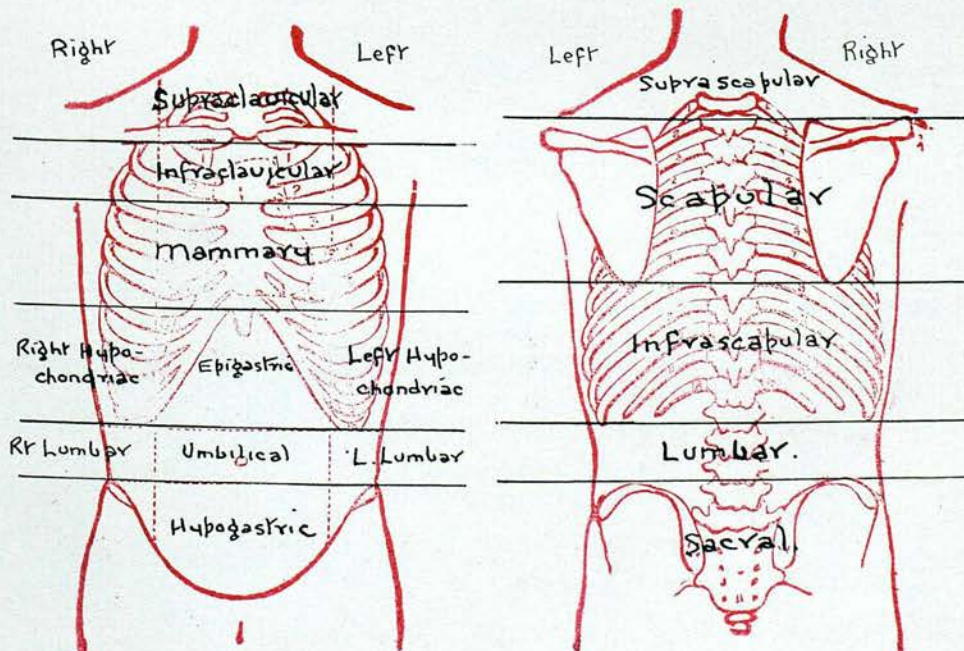 Right
Left
Supraclavicular
Infraclavicular
Mammary
Right Hypo-
chondriac
Epigastric
Left Hypo-
chondriac
Rt Lumbar
Umbilical
L. Lumbar
Hypogastric
Left
Right
Suprascapular
Scapular
Infrascapular
Lumbar.
Sacral.